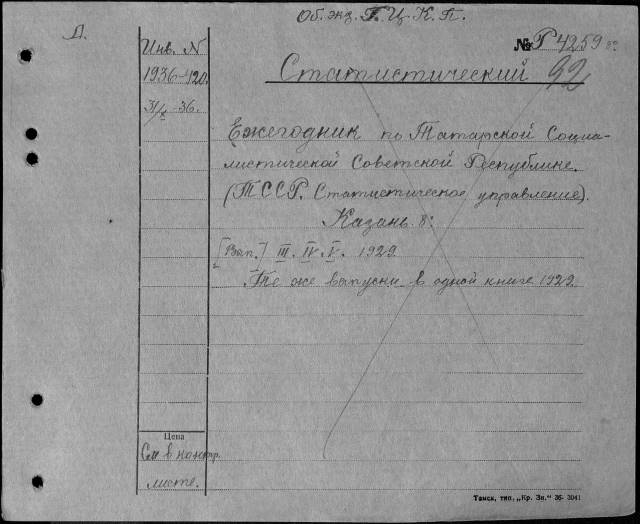 Об. экз. Г. Ц. К. П.
Д.
Инв. N
1936-420
31/X-36.
№ Р 4259 8°
Статистический 92
Ежегодник по Татарской Социа-
листической Советской Республике.
(ТССР. Статистическое управление).
Казань. 8°
[Вып.] III. IV. V. 1929.
Те же выпуски в одной книге 1929.
Цена
См в контр.
листе.
Томск, тип. „Кр. Зн." 36- 3041